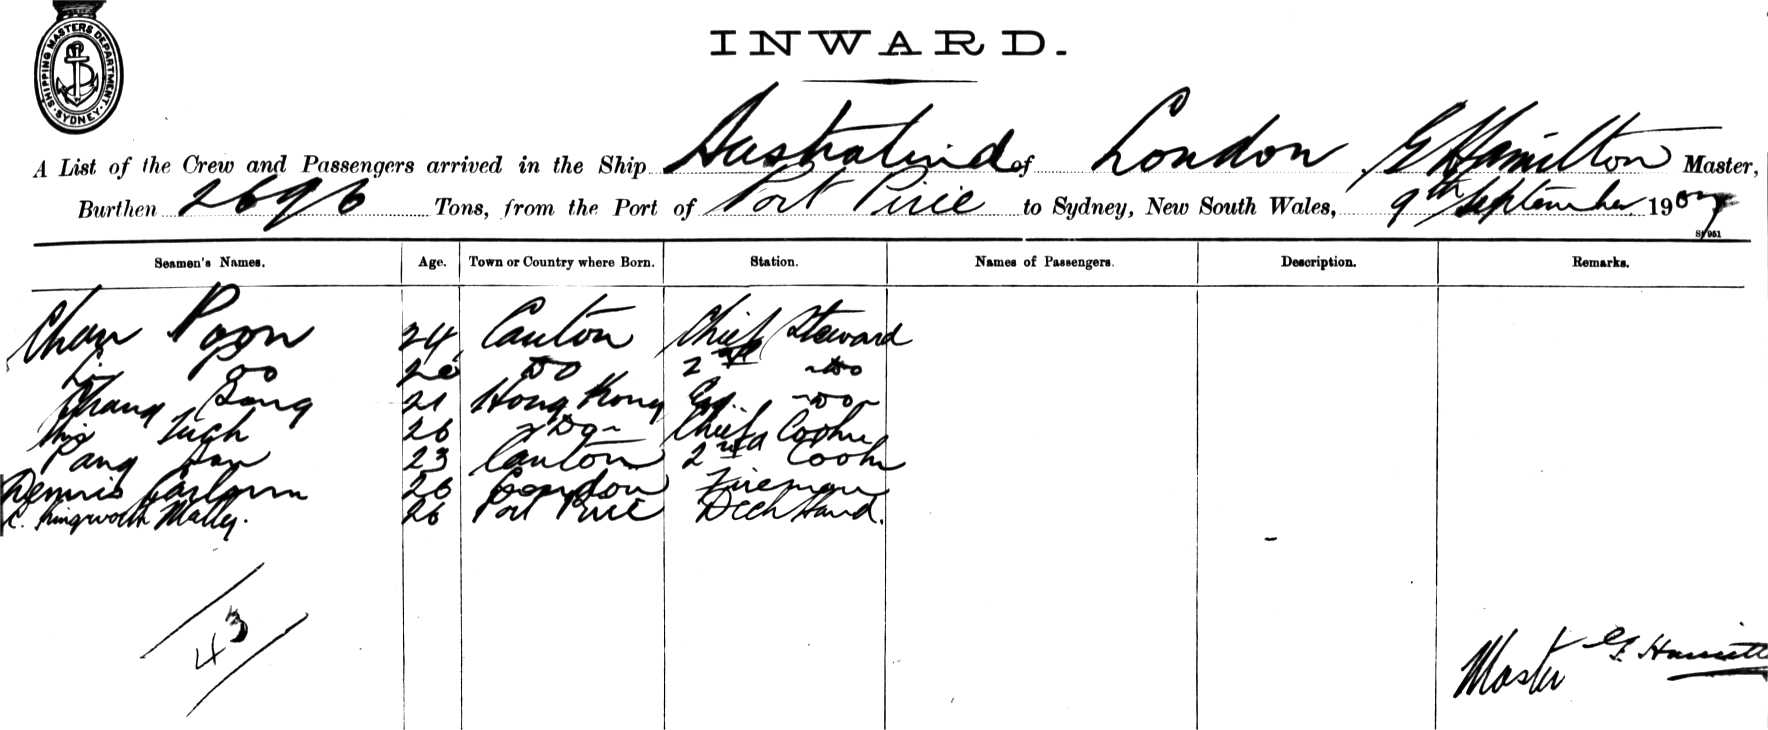 SHIPPING MASTERS DEPARTMENT. SYDNEY.
INWARD.
A List of the Crew and Passengers arrived in the Ship Australind of London G Hamilton Master,
Burthen 2696 Tons, from the Port of Port Pirie to Sydney, New South Wales, 9th September 1907
Seamen's Names. Age. Town or Country where Born. Station. Names of Passengers. Description. Remarks.
Chan Poon 24 Canton Chief Steward
Do 2nd Do
Chang 21 Hong Kong Do
26 Do Chief Cook
Pang 23 Canton 2nd Cook
Dennis 26 London Fireman
Kingworth Malley. 26 Port Pirie Deck Hand.
43
Master G Hamilton